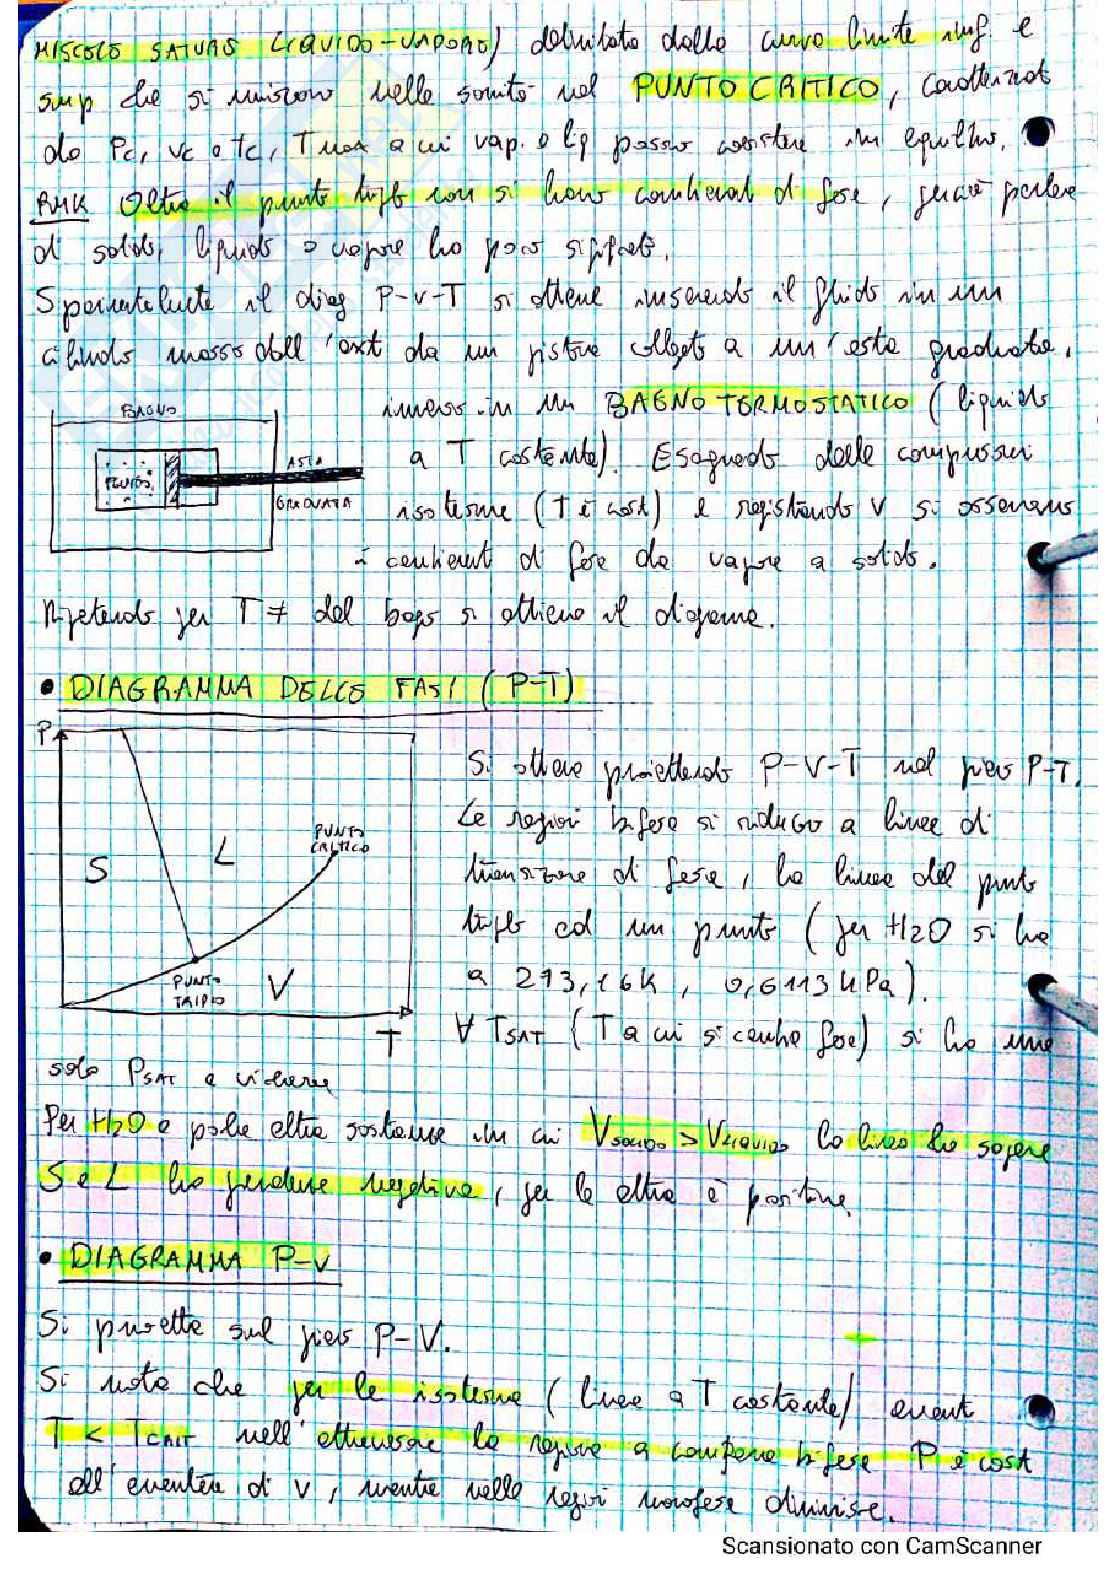 MISCELA SATURA (LIQUIDO-VAPORE) delimitata dalla curva limite inf. e
sup che si uniscono nella sommità nel PUNTO CRITICO, caratterizzato
da Pc, vc e tc, T max a cui vap. e liq possono coesistere in equilibrio.
RMK Oltre il punto triplo non si hanno cambiamenti di fase, perciò parlare
di solido, liquido o vapore ha poco significato.
Sperimentalmente il diag P-v-T si ottiene inserendo il fluido in un
cilindro mosso dall'ext da un pistone collegato a un'asta graduata,
immerso in un BAGNO TERMOSTATICO (liquido
a T costante). Eseguendo delle compressioni
isoterme (T è cost) e registrando V si osservano
i cambiamenti di fase da vapore a solido.
BAGNO
FLUIDO
ASTA
GRADUATA
Ripetendo per T ≠ del bagno si ottiene il diagramma.
• DIAGRAMMA DELLE FASI (P-T)
P
S
L
PUNTO
CRITICO
PUNTO
TRIPLO
V
T
Si ottiene proiettando P-V-T nel piano P-T.
Le regioni bifase si riducono a linee di
transizione di fase, la linea del punto
triplo ad un punto (per H2O si ha
a 273,16K, 0,6113 kPa).
∀ TSAT (T a cui si cambia fase) si ha una
sola PSAT e viceversa
Per H2O e poche altre sostanze in cui VSOLIDO > VLIQUIDO la linea che separa
S e L ha pendenza negativa, per le altre è positiva.
• DIAGRAMMA P-V
Si proietta sul piano P-V.
Si nota che per le isoterme (linee a T costante) aventi
T < TCRIT nell'attraversare la regione a campana bifase P è cost
all'aumentare di v, mentre nelle regioni monofase diminuisce.
Scansionato con CamScanner